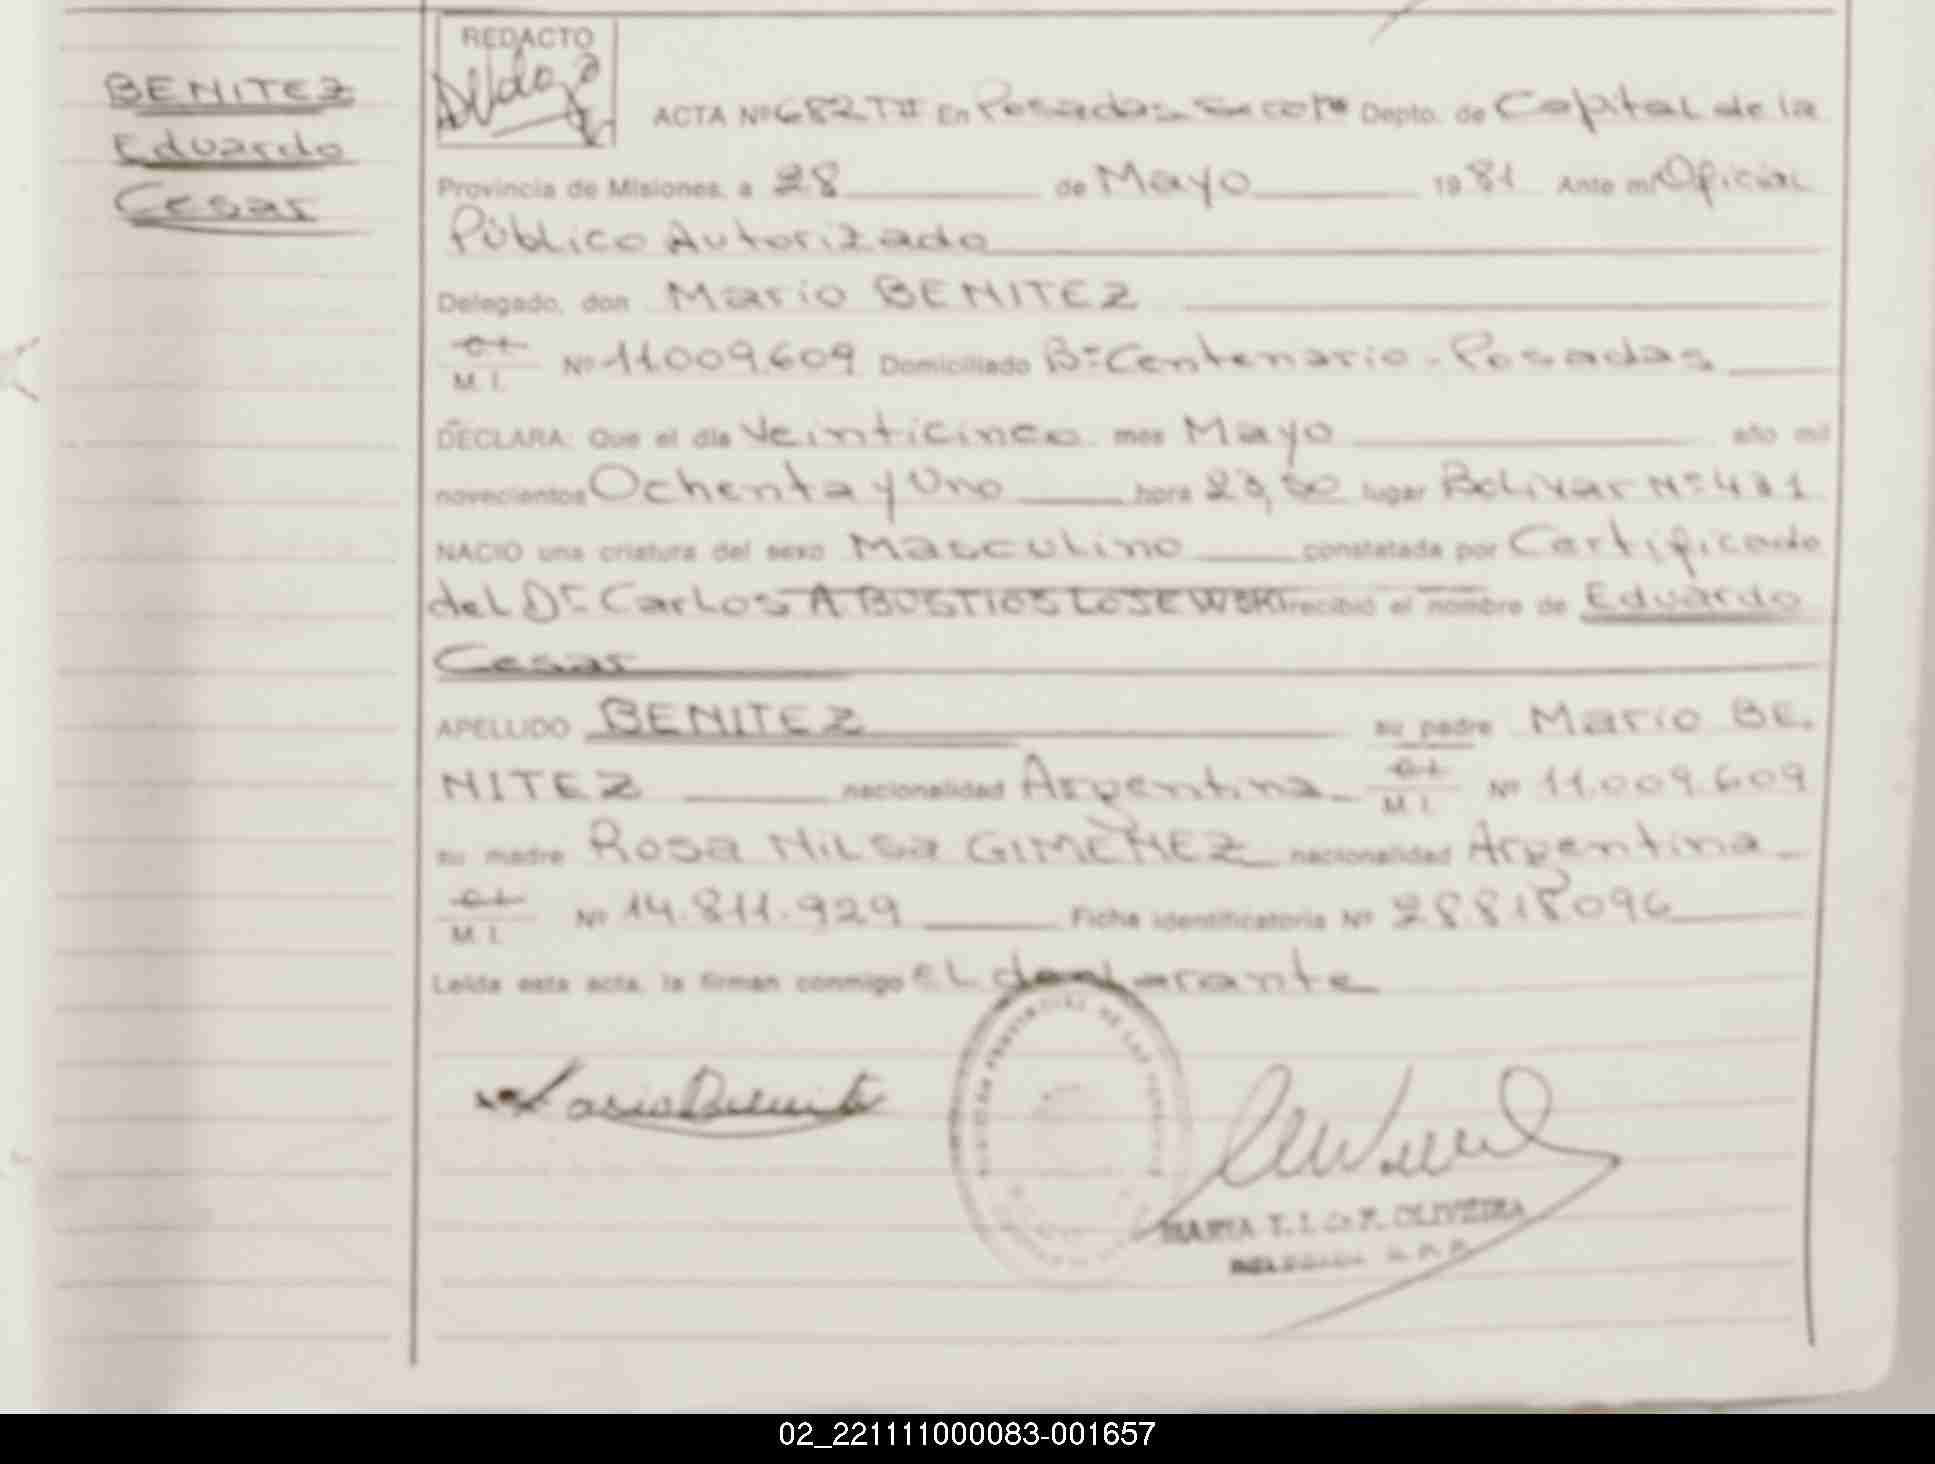 BENITEZ
Eduardo
Cesar
REDACTO
ACTA Nº 682 TII En Posadas Depto. de Capital de la
Provincia de Misiones, a 28 de Mayo 1981 Ante mi Oficial
Público Autorizado
Delegado, don Mario BENITEZ
C.I.
M. I. Nº 11.009.609 Domiciliado Bº Centenario - Posadas
DECLARA: Que el día Veinticinco mes Mayo año mil
novecientos Ochenta y Uno hora lugar Bolivar Nº
NACIO una criatura del sexo Masculino constatada por Certificado
del Dr. Carlos A BUSTIOS LOSEWSKI recibió el nombre de Eduardo
Cesar
APELLIDO BENITEZ su padre Mario BE.
NITEZ nacionalidad Argentina C.I.
M. I. Nº 11.009.609
su madre Rosa Nilsa GIMENEZ nacionalidad Argentina
C.I.
M. I. Nº 14.811.929 Ficha identificatoria Nº
Leída esta acta, la firman conmigo el declarante
Mario Benitez
MARIA T. OLIVEIRA
02_221111000083-001657